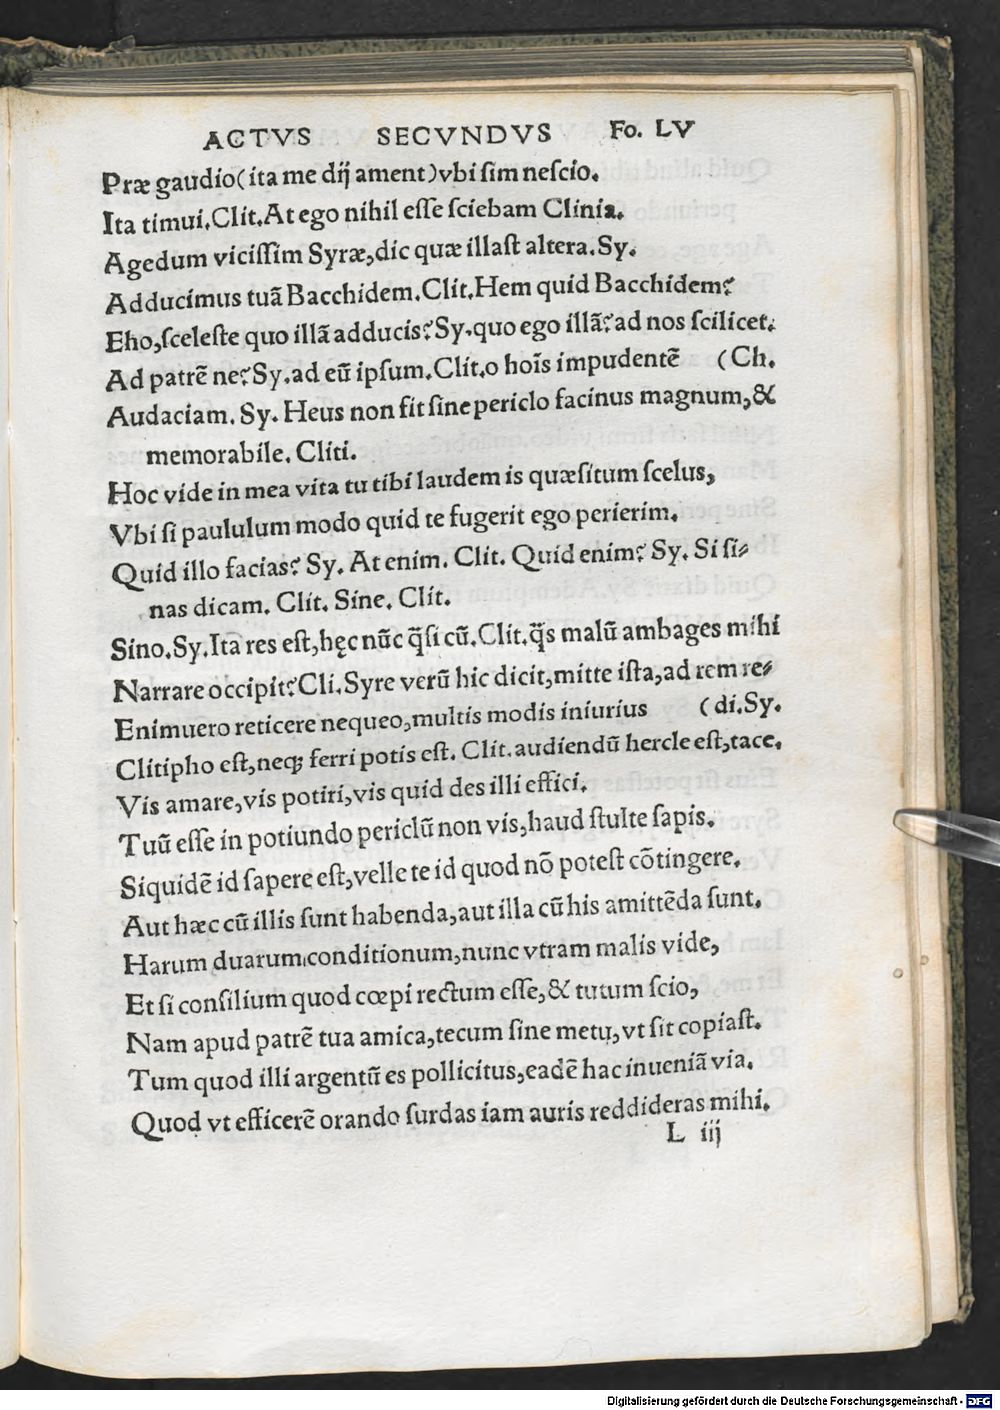 ACTVS SECVNDVS Fo. LV
Præ gaudio(ita me dij ament)vbi ſim neſcio.
Ita timui.Clit.At ego nihil eſſe ſciebam Clinia.
Agedum viciſſim Syræ,dic quæ illaſt altera.Sy.
Adducimus tuã Bacchidem.Clit.Hem quid Bacchidem?
Eho,ſceleſte quo illã adducis?Sy.quo ego illã?ad nos ſcilicet.
Ad patrẽ ne?Sy.ad eũ ipſum.Clit.o hoĩs impudentẽ (Ch.
Audaciam. Sy. Heus non fit ſine periclo facinus magnum,&
memorabile. Cliti.
Hoc vide in mea vita tu tibi laudem is quæſitum ſcelus,
Vbi ſi paululum modo quid te fugerit ego perierim.
Quid illo facias? Sy. At enim. Clit. Quid enim? Sy. Si ſi-
nas dicam. Clit. Sine. Clit.
Sino.Sy.Ita res eſt,hęc nũc q̃ſi cũ.Clit.q̃s malũ ambages mihi
Narrare occipit?Cli.Syre verũ hic dicit,mitte iſta,ad rem re-
Enimuero reticere nequeo,multis modis iniurius (di.Sy.
Clitipho eſt,neq; ferri potis eſt. Clit.audiendũ hercle eſt,tace.
Vis amare,vis potiri,vis quid des illi effici.
Tuũ eſſe in potiundo periclũ non vis,haud ſtulte ſapis.
Siquidẽ id ſapere eſt,velle te id quod nõ poteſt cõtingere.
Aut hæc cũ illis ſunt habenda,aut illa cũ his amittẽda ſunt.
Harum duarum conditionum,nunc vtram malis vide,
Et ſi conſilium quod cœpi rectum eſſe,& tutum ſcio,
Nam apud patrẽ tua amica,tecum ſine metu,vt ſit copiaſt.
Tum quod illi argentũ es pollicitus,eadẽ hac inueniã via.
Quod vt efficerẽ orando ſurdas iam auris reddideras mihi.
L iij
Digitalisierung gefördert durch die Deutsche Forschungsgemeinschaft - DFG